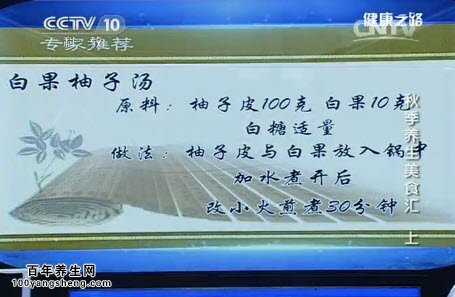 CCTV 10
健康之路
CNTV
专家推荐
白果柚子汤
原料：柚子皮100克 白果10克
白糖适量
做法：柚子皮与白果放入锅中
加水煮开后
改小火煎煮30分钟
秋季养生美食汇 上
百年养生网
100yangsheng.com